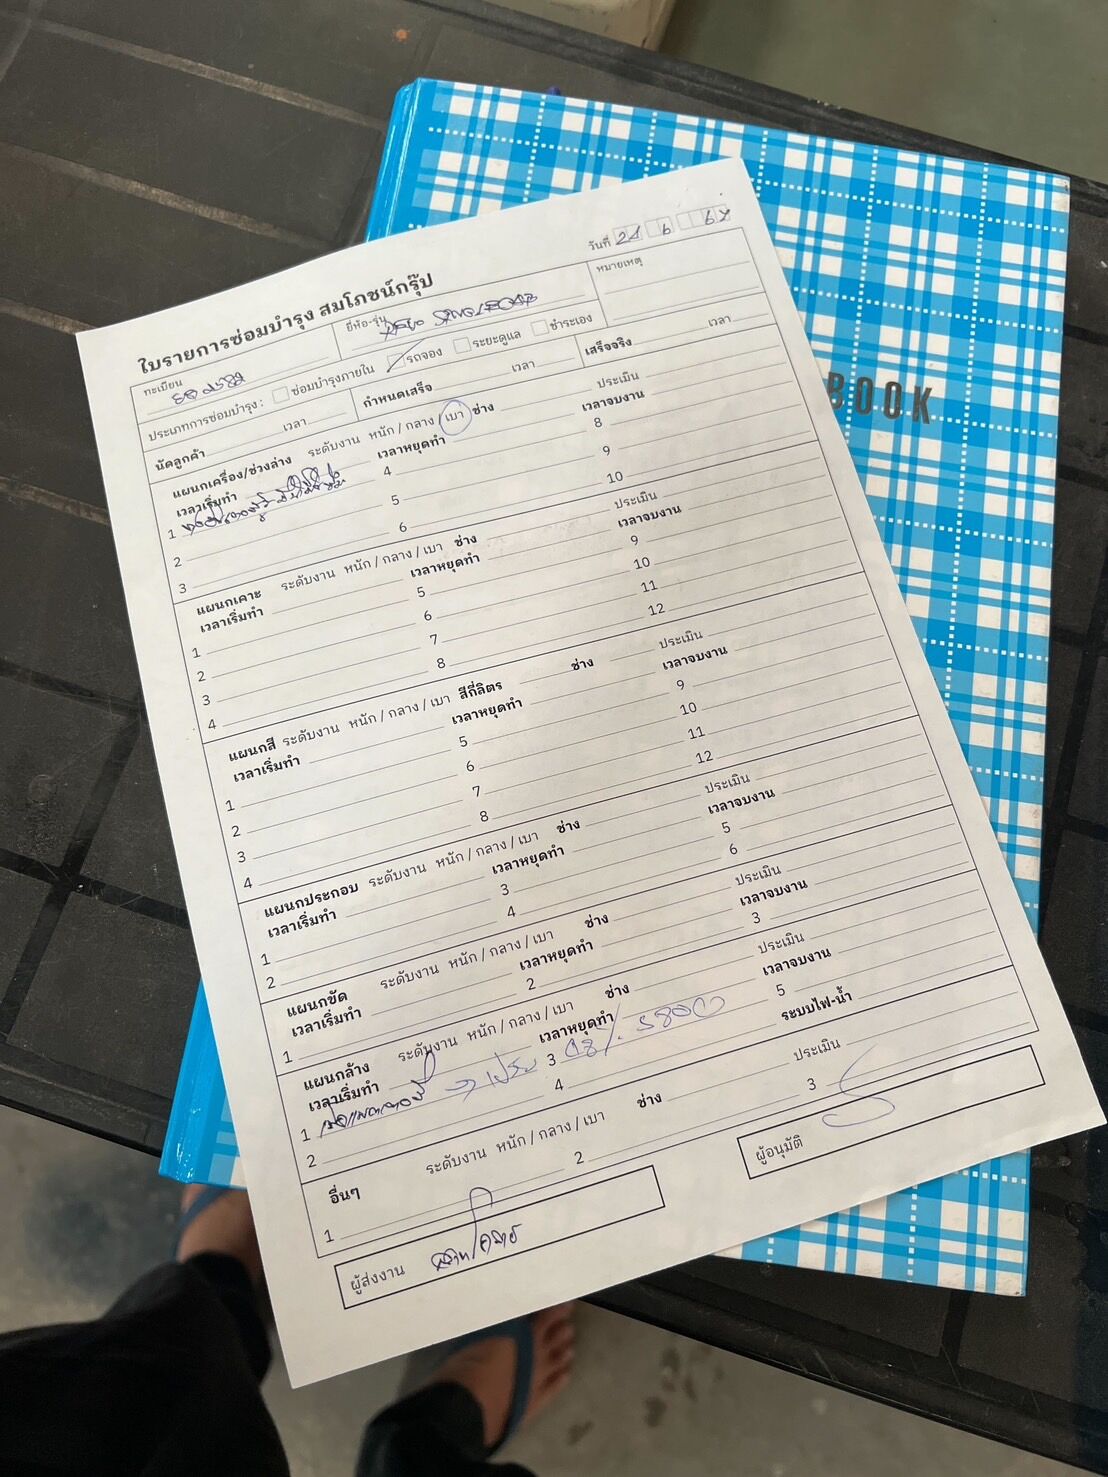 BOOK
วันที่ 24 6 67
ใบรายการซ่อมบำรุง สมโภชน์กรุ๊ป
ทะเบียน
ยี่ห้อ-รุ่น
หมายเหตุ
ประเภทการซ่อมบำรุง : ซ่อมบำรุงภายใน รถจอง ระยะดูแล ชำระเอง
นัดลูกค้า เวลา กำหนดเสร็จ เวลา เสร็จจริง เวลา
แผนกเครื่อง/ช่วงล่าง ระดับงาน หนัก / กลาง / เบา ช่าง ประเมิน
เวลาเริ่มทำ เวลาหยุดทำ เวลาจบงาน
1 4 8
2 5 9
3 6 10
แผนกเคาะ ระดับงาน หนัก / กลาง / เบา ช่าง ประเมิน
เวลาเริ่มทำ เวลาหยุดทำ เวลาจบงาน
1 5 9
2 6 10
3 7 11
4 8 12
แผนกสี ระดับงาน หนัก / กลาง / เบา สีกี่ลิตร ช่าง ประเมิน
เวลาเริ่มทำ เวลาหยุดทำ เวลาจบงาน
1 5 9
2 6 10
3 7 11
4 8 12
แผนกประกอบ ระดับงาน หนัก / กลาง / เบา ช่าง ประเมิน
เวลาเริ่มทำ เวลาหยุดทำ เวลาจบงาน
1 3 5
2 4 6
แผนกขัด ระดับงาน หนัก / กลาง / เบา ช่าง ประเมิน
เวลาเริ่มทำ เวลาหยุดทำ เวลาจบงาน
1 2 3
แผนกล้าง ระดับงาน หนัก / กลาง / เบา ช่าง ประเมิน
เวลาเริ่มทำ เวลาหยุดทำ เวลาจบงาน
1 3 5
2 4 ระบบไฟ-น้ำ
อื่นๆ ระดับงาน หนัก / กลาง / เบา ช่าง ประเมิน
1 2 3
ผู้ส่งงาน
ผู้อนุมัติ